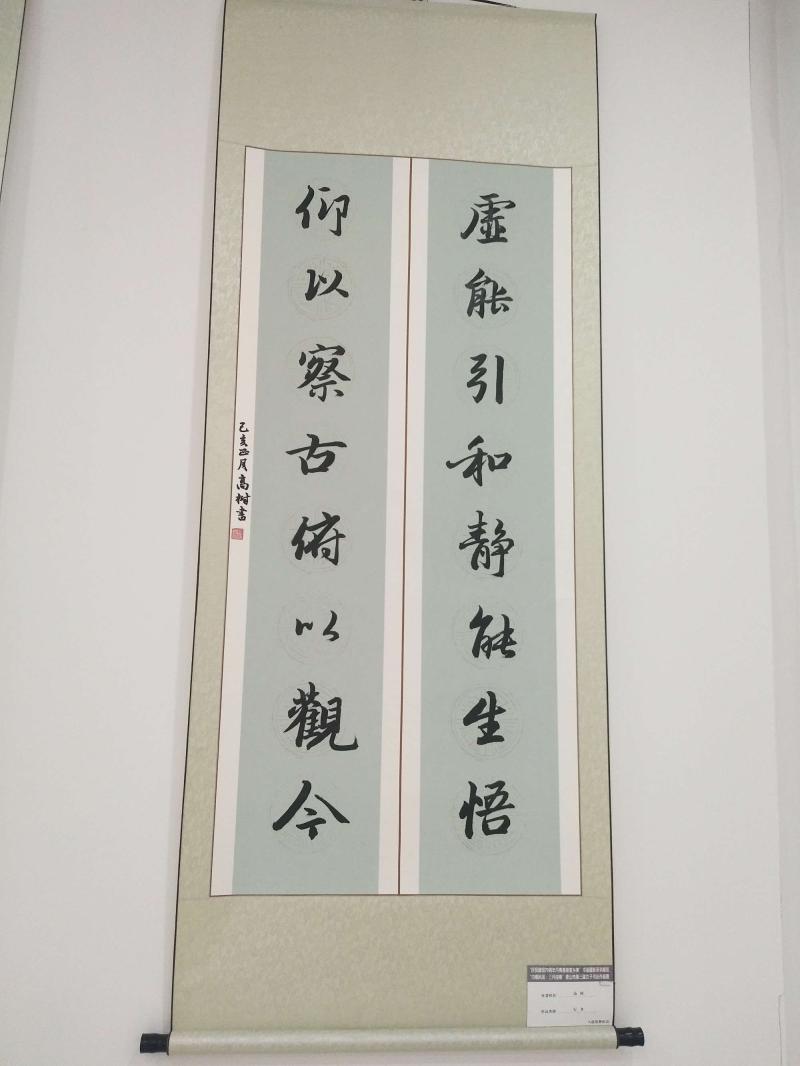 虚能引和静能生悟
仰以察古俯以觀今
己亥正月高樹書